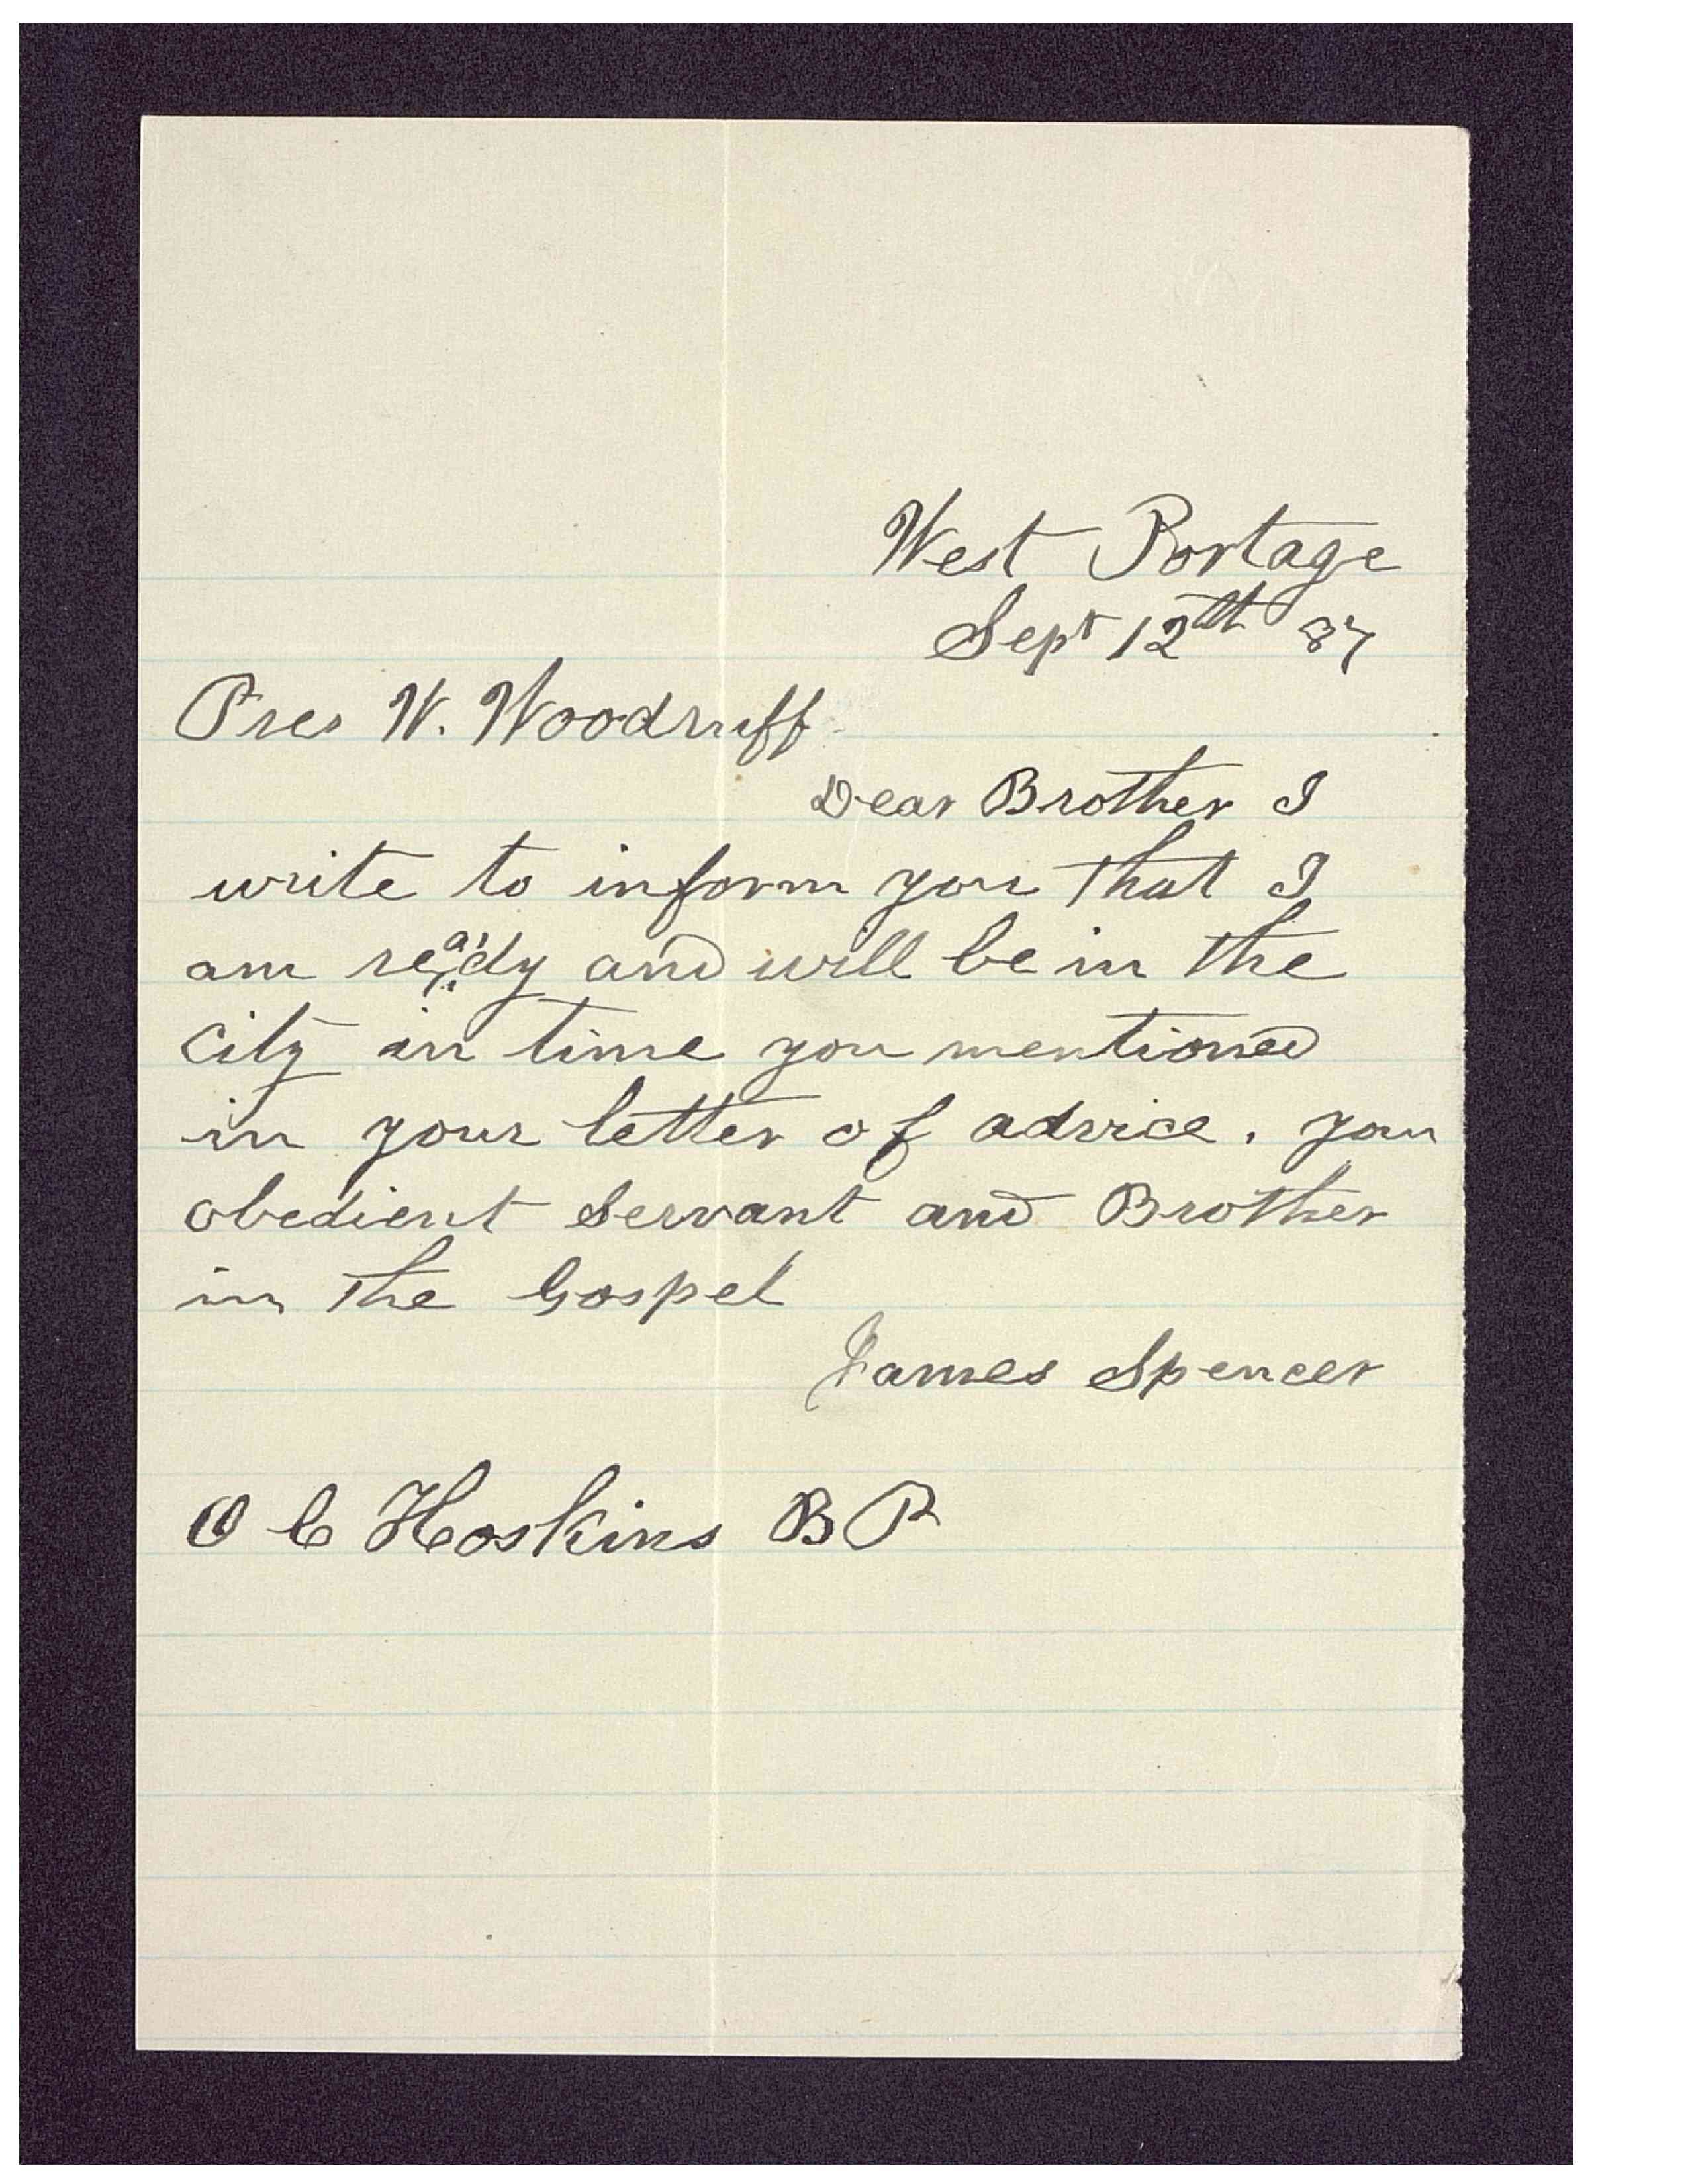 West Portage
Sept 12th 87
Pres W. Woodruff
Dear Brother I
write to inform you that I
am ready and will be in the
City in time you mentioned
in your letter of advice. your
obedient servant and Brother
in the Gospel
James Spencer
O C Hoskins BP